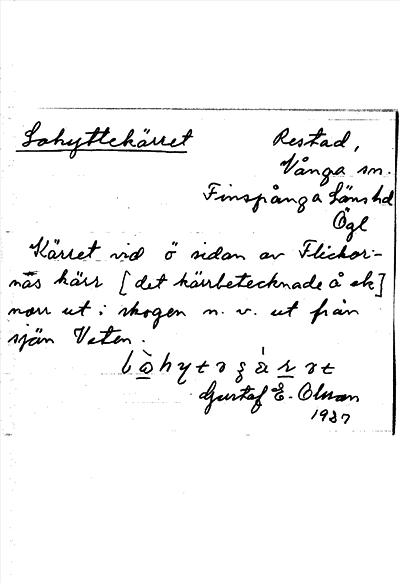 Lohyttekärret
Restad,
Vånga sn.
Finspånga Läns hd
Ögl
Kärret vid ö sidan av Flickor-
nas kärr [det kärrbetecknade å ek]
norr ut i skogen n. v. ut från
sjön Veten.
Gustaf E. Olsson
1937